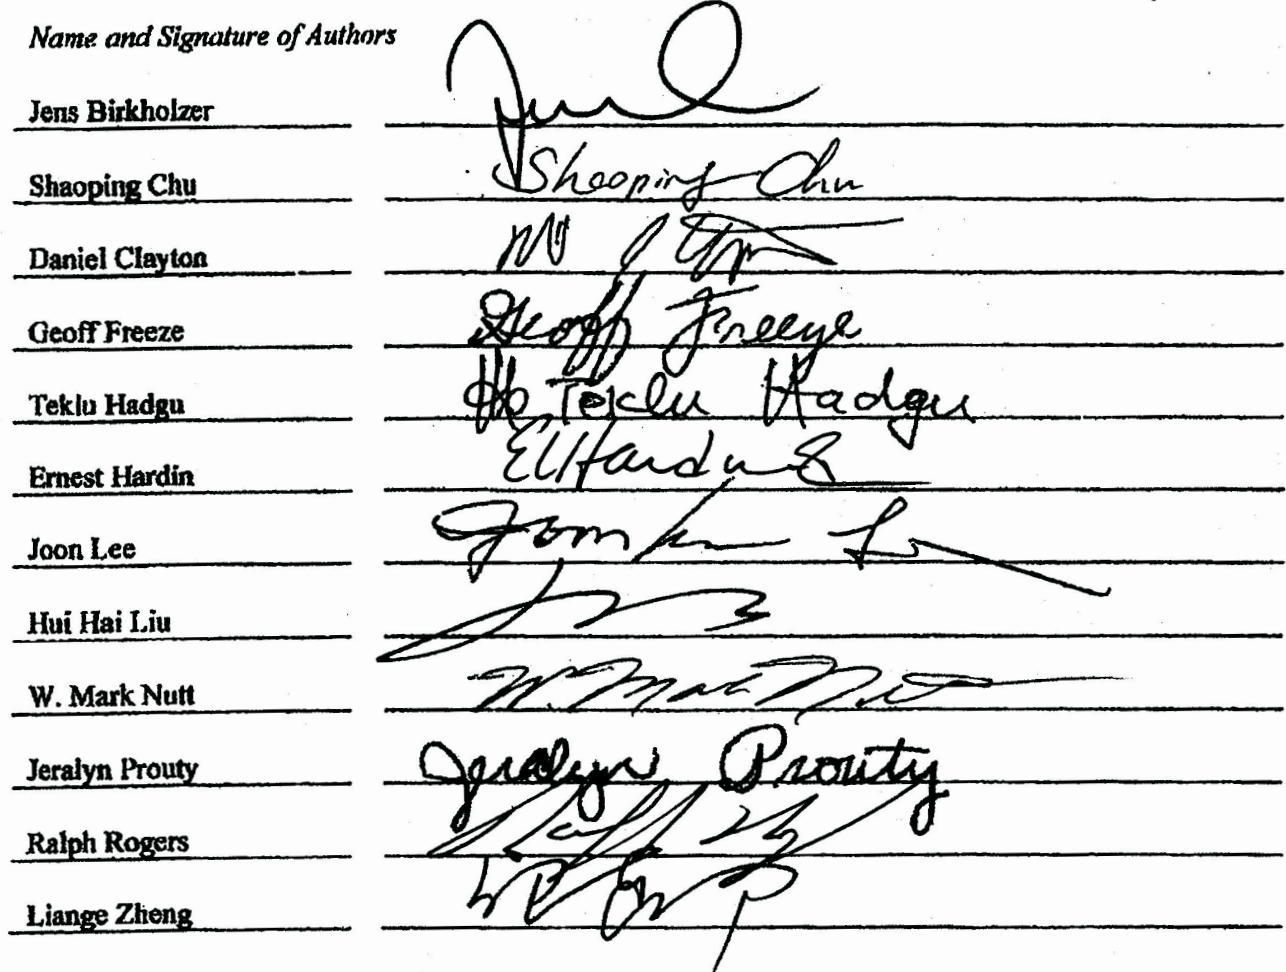 Name and Signature of Authors
Jens Birkholzer
Shaoping Chu Shaoping Chu
Daniel Clayton
Geoff Freeze Geoff Freeze
Teklu Hadgu Teklu Hadgu
Ernest Hardin EHardin
Joon Lee
Hui Hai Liu
W. Mark Nutt W. Mark Nutt
Jeralyn Prouty Jeralyn Prouty
Ralph Rogers Ralph
Liange Zheng